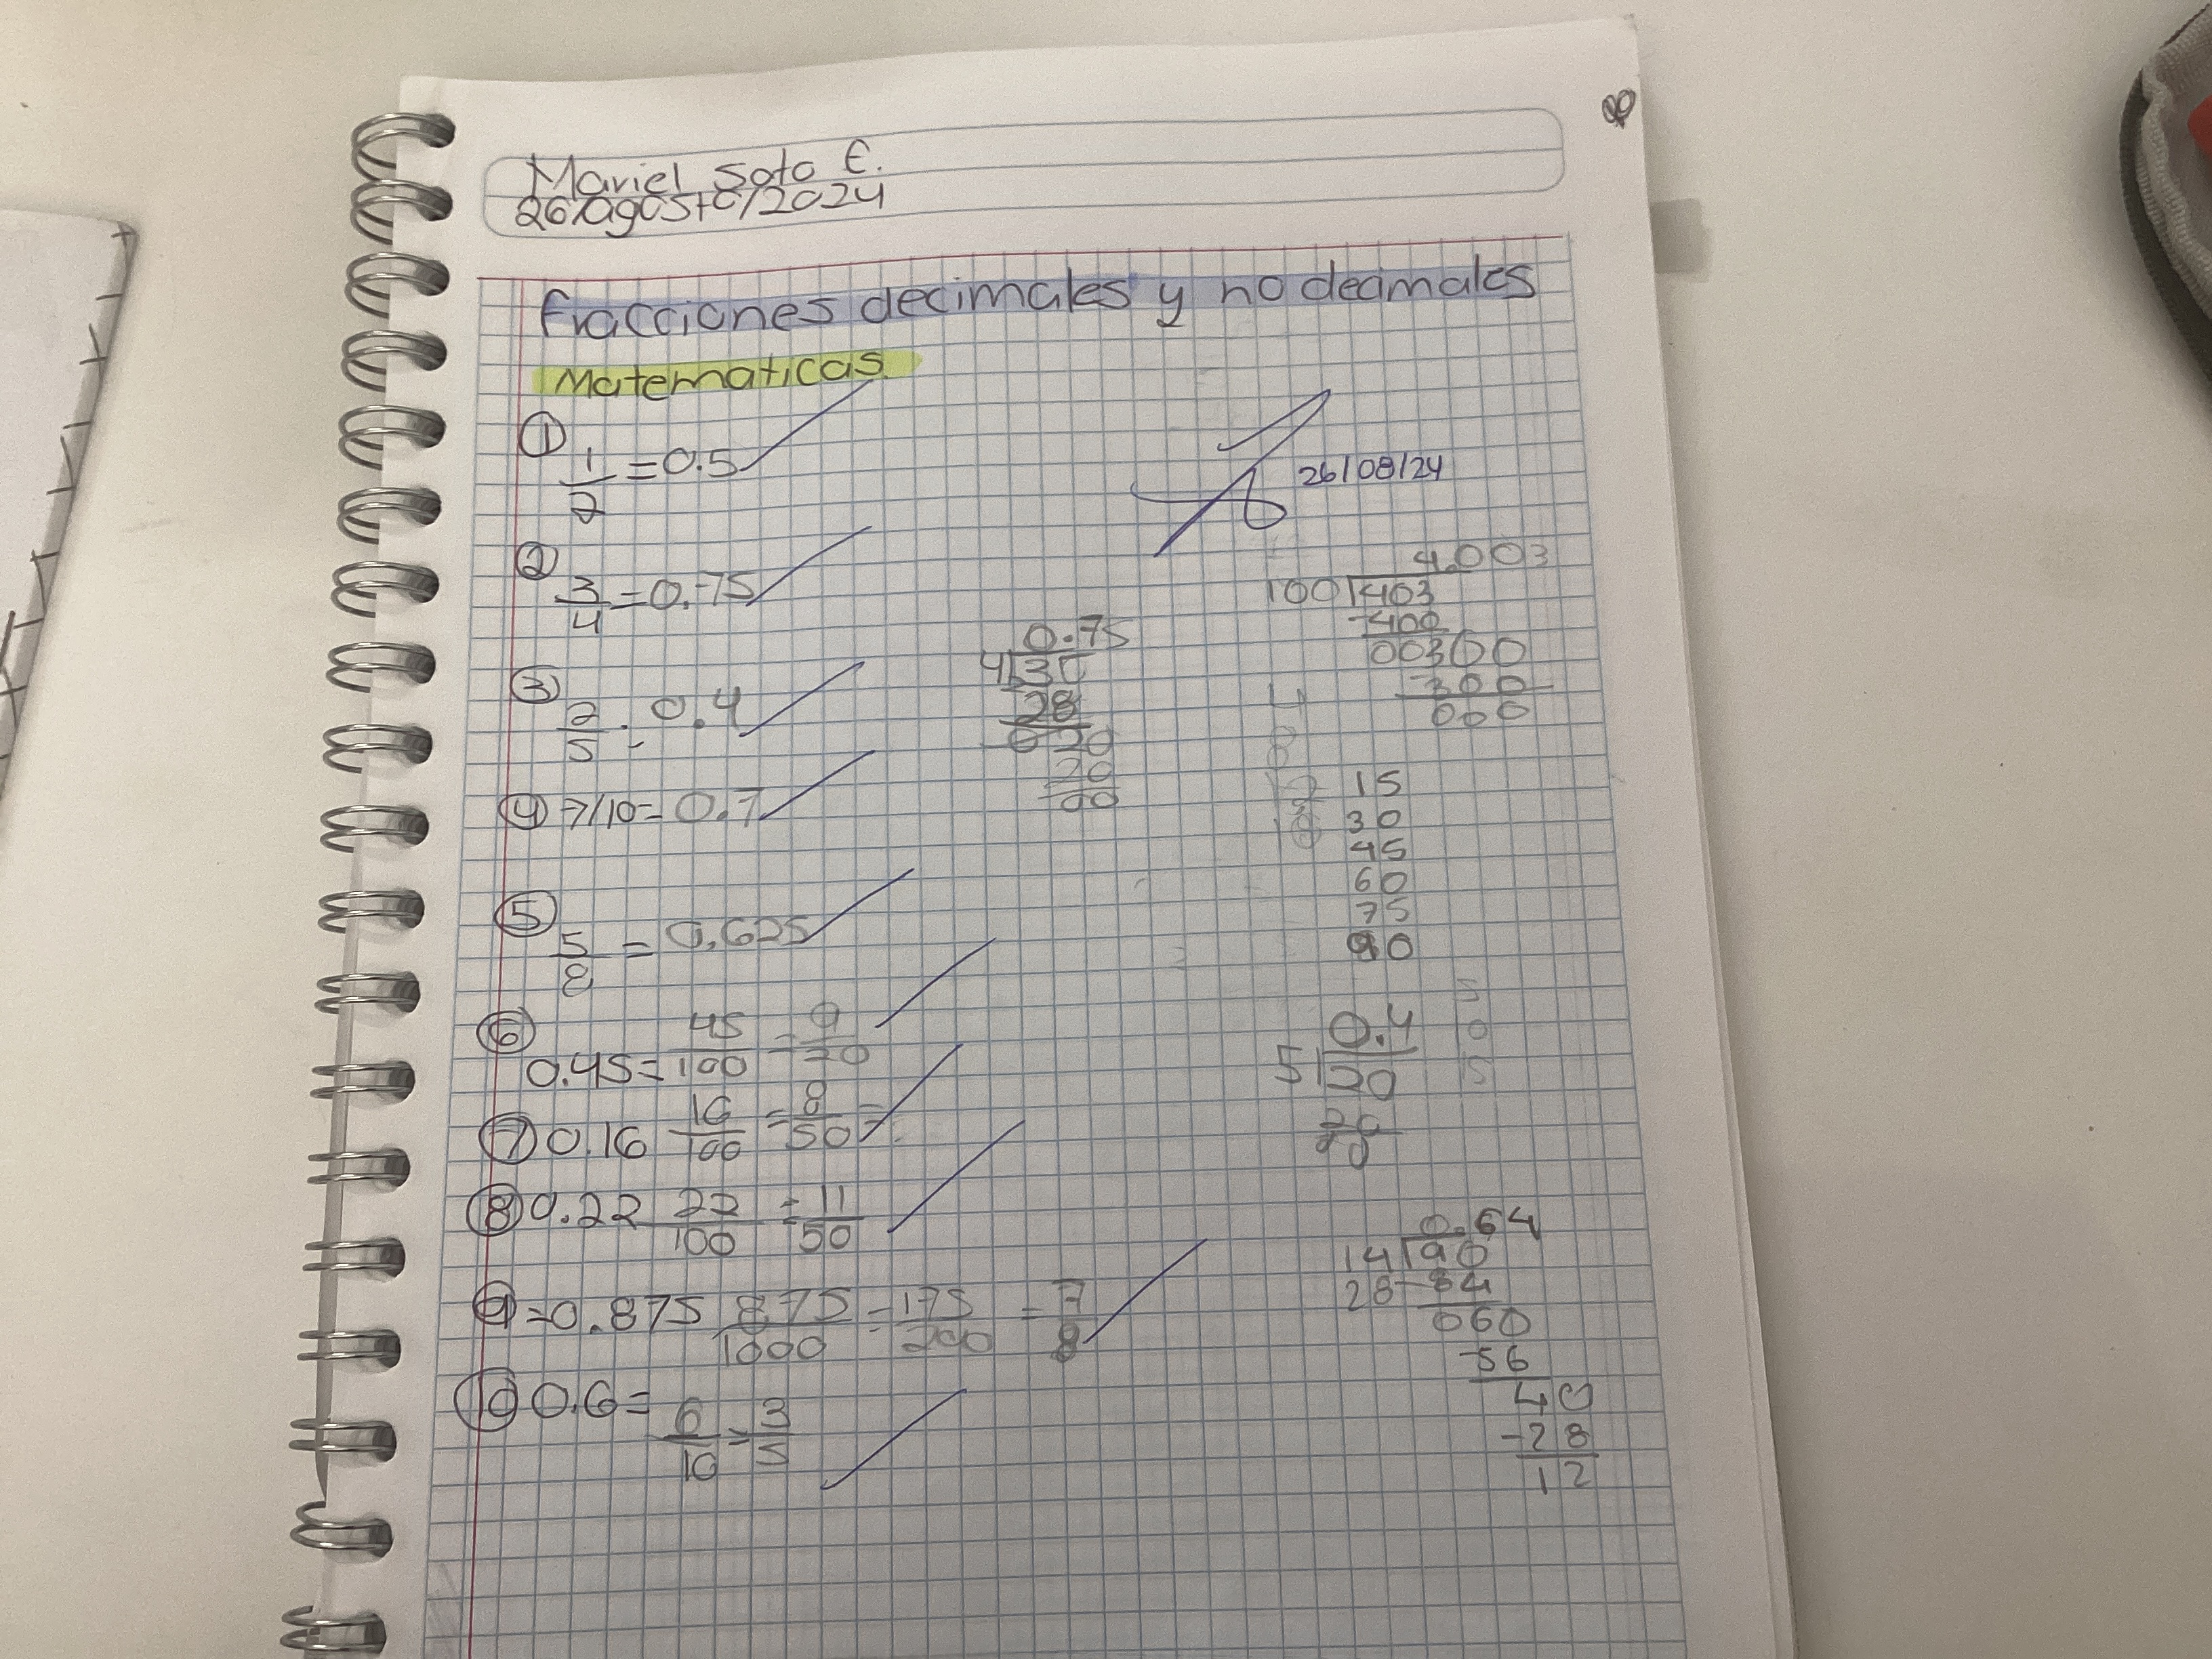 Mariel Soto E.
26/agosto/2024
fracciones decimales y no decimales
Matematicas.
① 1/2 = 0.5
26/08/24
② 3/4 = 0.75
③ 2/5 = 0.4
④ 7/10 = 0.7
⑤ 5/8 = 0.625
⑥ 0.45 = 45/100 = 9/20
⑦ 0.16 16/100 = 8/50 =
⑧ 0.22 22/100 = 11/50
⑨ = 0.875 875/1000 = 175/200 = 7/8
⑩ 0.6 = 6/10 = 3/5
0.75
4 30
28
0 20
20
00
4.003
100 403
-400
00300
-300
000
15
30
45
60
75
90
0.4
5 20
20
00
0.64
14 90
28 -84
060
-56
40
-28
12